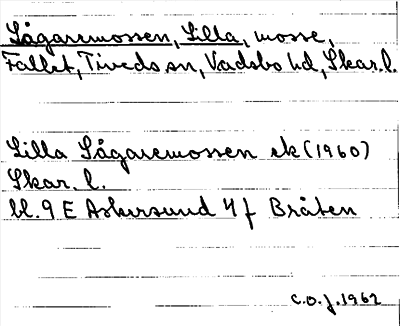 Sågaremossen, Lilla, mosse,
Fallet, Tiveds sn, Vadsbo hd, Skar. l.
Lilla Sågaremossen ek (1960)
Skar. l.
bl. 9 E Askersund 4 f Bråten
C.O.J. 1962